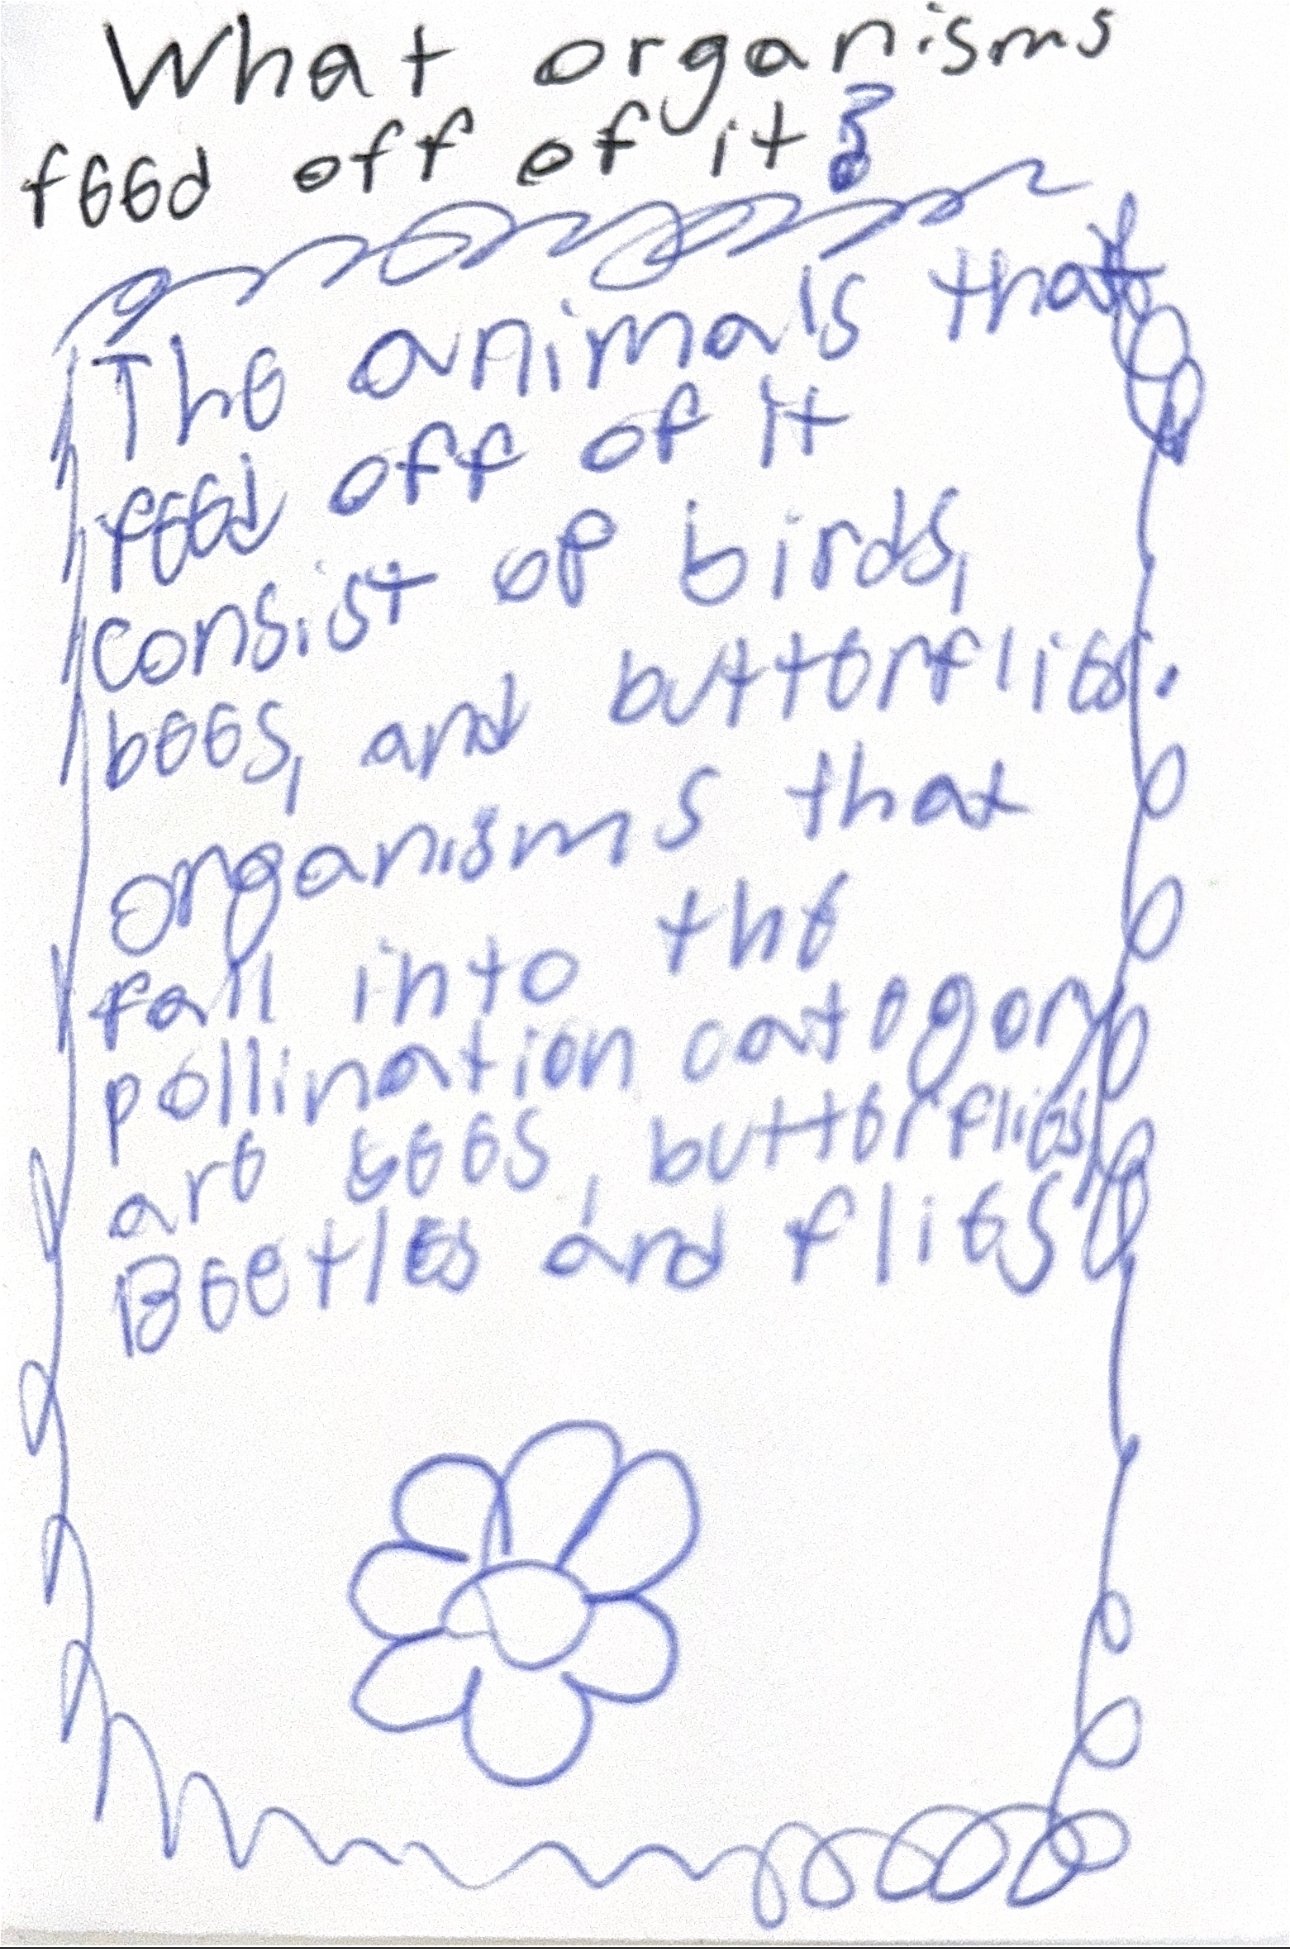 What organisms
feed off of it?
The animals that
feed off of it
consist of birds,
bees, and butterflies.
organisms that
fall into the
pollination category
are bees, butterflies,
Beetles and flies